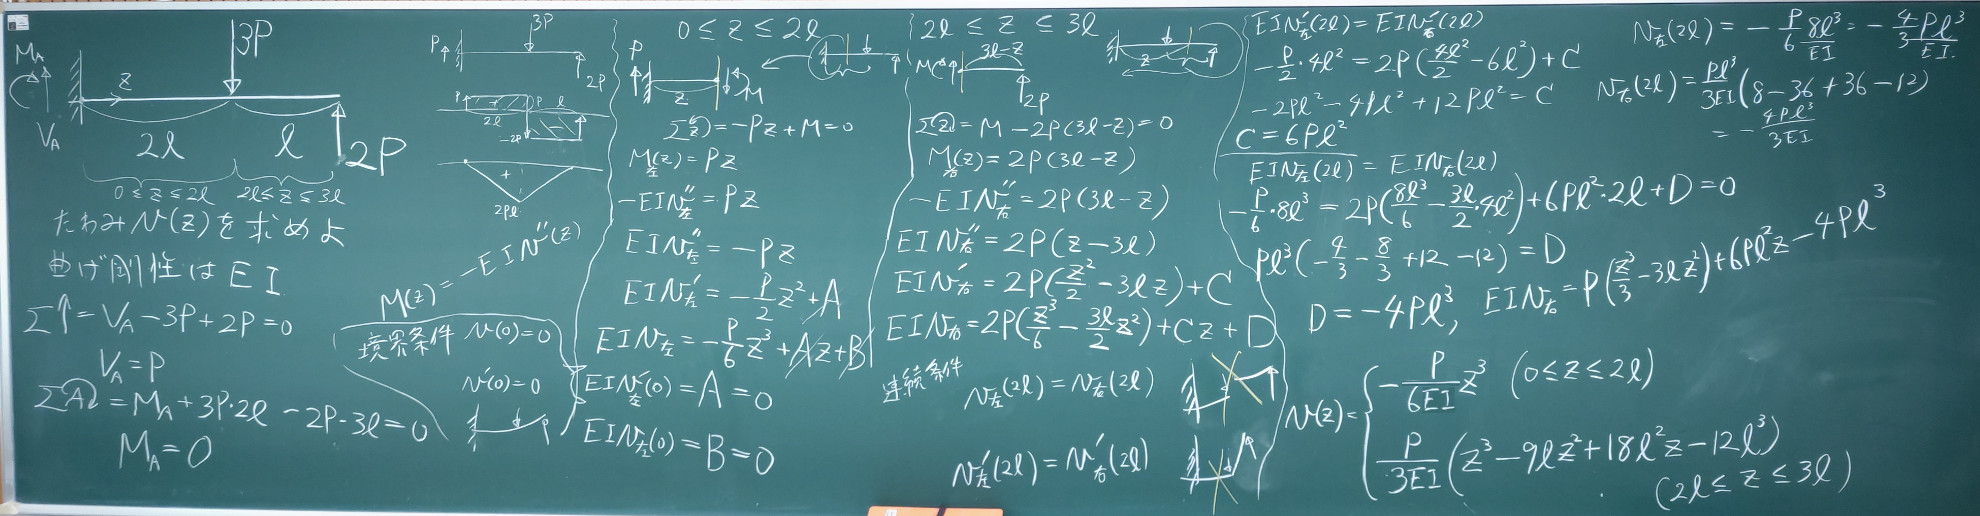 3P
M_A
z
V_A
2l
l
2P
0≤z≤2l
2l≤z≤3l
たわみv(z)を求めよ
曲げ剛性はEI
Σ↑=V_A-3P+2P=0
V_A=P
ΣA=M_A+3P·2l-2P·3l=0
M_A=0
3P
P
2P
P
+
P
l
2l
-2P
-
+
2Pl
M(z)=-EIv''(z)
境界条件 v(0)=0
v'(0)=0
0≤z≤2l
P
z
M
Σz=-Pz+M=0
M左(z)=Pz
-EIv左''=Pz
EIv左''=-Pz
EIv左'=-P/2 z²+A
EIv左=-P/6 z³+Az+B
EIv左'(0)=A=0
EIv左(0)=B=0
2l≤z≤3l
3l-z
M
2P
z
Σz=M-2P(3l-z)=0
M右(z)=2P(3l-z)
-EIv右''=2P(3l-z)
EIv右''=2P(z-3l)
EIv右'=2P(z²/2-3lz)+C
EIv右=2P(z³/6-3l/2 z²)+Cz+D
連続条件
v左(2l)=v右(2l)
v左'(2l)=v右'(2l)
EIv左'(2l)=EIv右'(2l)
-P/2·4l²=2P(4l²/2-6l²)+C
-2Pl²-4Pl²+12Pl²=C
C=6Pl²
EIv左(2l)=EIv右(2l)
-P/6·8l³=2P(8l³/6-3l/2·4l²)+6Pl²·2l+D=0
Pl³(-4/3-8/3+12-12)=D
D=-4Pl³, EIv右=P(z³/3-3lz²)+6Pl²z-4Pl³
v(z)={-P/6EI z³ (0≤z≤2l)
P/3EI(z³-9lz²+18l²z-12l³)
(2l≤z≤3l)
v左(2l)=-P/6 8l³/EI=-4/3 Pl³/EI.
v右(2l)=Pl³/3EI(8-36+36-12)
=-4Pl³/3EI